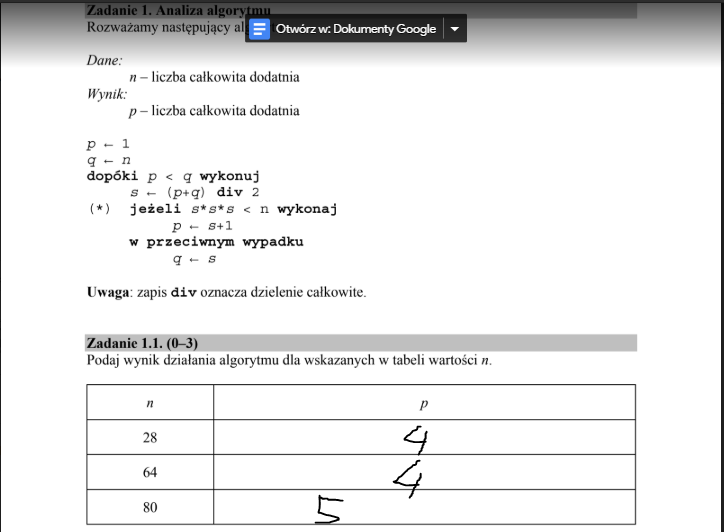 Zadanie 1. Analiza algorytmu
Rozważamy następujący al
Otwórz w: Dokumenty Google
Dane:
n – liczba całkowita dodatnia
Wynik:
p – liczba całkowita dodatnia
p ← 1
q ← n
dopóki p < q wykonuj
s ← (p+q) div 2
(*) jeżeli s*s*s < n wykonaj
p ← s+1
w przeciwnym wypadku
q ← s
Uwaga: zapis div oznacza dzielenie całkowite.
Zadanie 1.1. (0–3)
Podaj wynik działania algorytmu dla wskazanych w tabeli wartości n.
n p
28 4
64 4
80 5